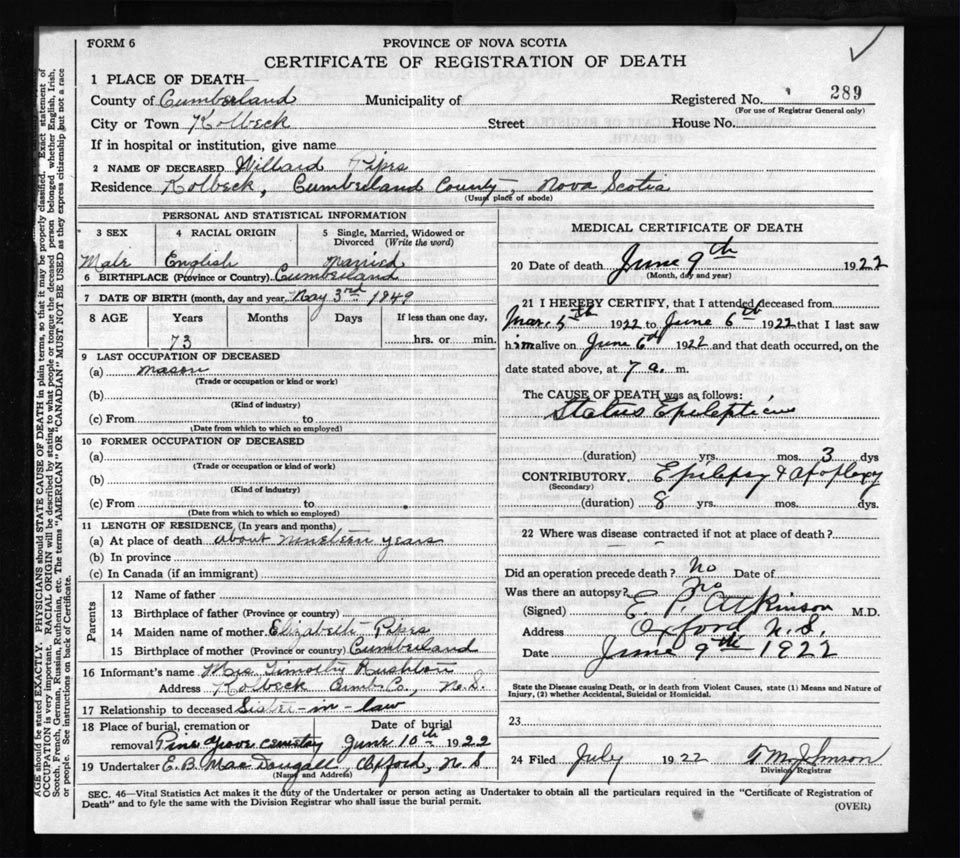 FORM 6
PROVINCE OF NOVA SCOTIA
CERTIFICATE OF REGISTRATION OF DEATH
1 PLACE OF DEATH—
County of Cumberland Municipality of Registered No. 289
(For use of Registrar General only)
City or Town Kolbeck Street House No.
If in hospital or institution, give name
2 NAME OF DECEASED Willard Pipes
Residence Kolbeck, Cumberland County, Nova Scotia
(Usual place of abode)
PERSONAL AND STATISTICAL INFORMATION
3 SEX 4 RACIAL ORIGIN 5 Single, Married, Widowed or Divorced (Write the word)
Male English Married
6 BIRTHPLACE (Province or Country) Cumberland
7 DATE OF BIRTH (month, day and year) May 3rd 1849
8 AGE Years Months Days If less than one day,
73 hrs. or min.
9 LAST OCCUPATION OF DECEASED
(a) mason
(Trade or occupation or kind of work)
(b)
(Kind of industry)
(c) From to
(Date from which to which so employed)
10 FORMER OCCUPATION OF DECEASED
(a)
(Trade or occupation or kind of work)
(b)
(Kind of industry)
(c) From to
(Date from which to which so employed)
11 LENGTH OF RESIDENCE (In years and months)
(a) At place of death about nineteen years
(b) In province
(c) In Canada (if an immigrant)
Parents
12 Name of father
13 Birthplace of father (Province or country)
14 Maiden name of mother Elizabeth Pipes
15 Birthplace of mother (Province or country) Cumberland
16 Informant's name Mrs Timothy Rushton
Address Kolbeck Cumb. Co., N.S.
17 Relationship to deceased Sister-in-law
18 Place of burial, cremation or removal Pine Grove cemetery Date of burial June 10th 1922
19 Undertaker E. B. MacDougall Oxford, N.S
(Name and Address)
MEDICAL CERTIFICATE OF DEATH
20 Date of death June 9th 1922
(Month, day and year)
21 I HEREBY CERTIFY, that I attended deceased from
Mar. 5th 1922 to June 6th 1922 that I last saw
him alive on June 6th 1922 and that death occurred, on the
date stated above, at 7 a. m.
The CAUSE OF DEATH was as follows:
Status Epilepticus
(duration) yrs. mos. 3 dys
CONTRIBUTORY Epilepsy & Apoplexy
(Secondary)
(duration) 8 yrs. mos. dys.
22 Where was disease contracted if not at place of death?
Did an operation precede death? No Date of
Was there an autopsy? No
(Signed) E. P. Atkinson M.D.
Address Oxford N.S.
Date June 9th 1922
State the Disease causing Death, or in death from Violent Causes, state (1) Means and Nature of
Injury, (2) whether Accidental, Suicidal or Homicidal.
23
24 Filed July 1922
Division Registrar
SEC. 46—Vital Statistics Act makes it the duty of the Undertaker or person acting as Undertaker to obtain all the particulars required in the "Certificate of Registration of
Death" and to fyle the same with the Division Registrar who shall issue the burial permit.
(OVER)
AGE should be stated EXACTLY. PHYSICIANS should STATE CAUSE OF DEATH in plain terms, so that it may be properly classified. Exact statement of
OCCUPATION is very important. RACIAL ORIGIN will be described by stating to what people or tongue the deceased person belonged whether English, Irish,
Scotch, French, German, Russian, Ruthenian, etc. The terms "AMERICAN" OR "CANADIAN" MUST NOT BE USED as they express citizenship but not a race
or people. See instructions on back of Certificate.